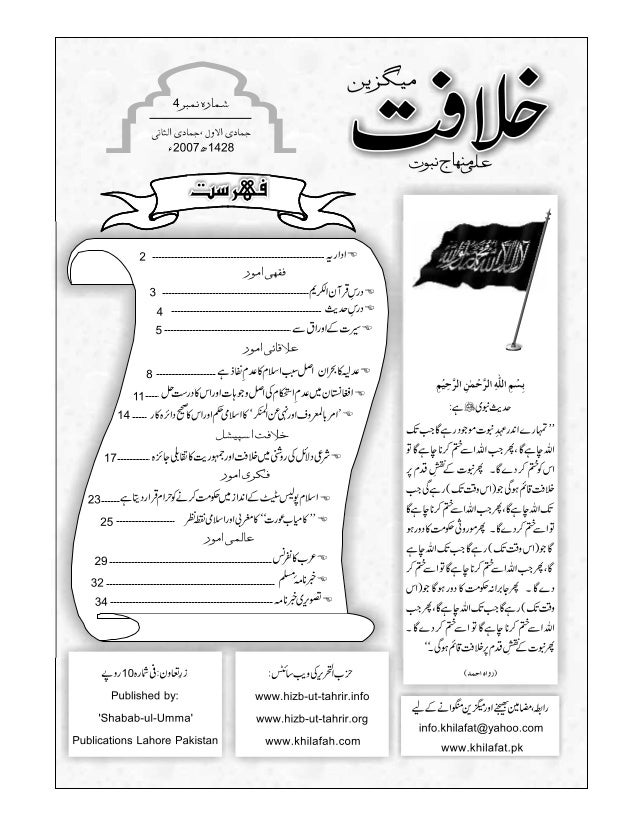 میگزین
خلافت
علیٰ منہاج نبوت
شمارہ نمبر 4
جمادی الاول ، جمادی الثانی
1428ھ 2007ء
فہرست
اداریہ ---------- 2
فقہی امور
درسِ قرآن الکریم ---------- 3
درسِ حدیث ---------- 4
سیرت کے اوراق سے ---------- 5
علاقائی امور
عدلیہ کا بحران اصل سبب اسلام کا عدمِ نفاذ ہے ---------- 8
افغانستان میں عدم استحکام کی اصل وجوہات اور اس کا درست حل ----- 11
'امر بالمعروف اور نہی عن المنکر' کا اسلامی حکم اور اس کا صحیح دائرہ کار ----- 14
خلافت اسپیشل
شرعی دلائل کی روشنی میں خلافت اور جمہوریت کا تقابلی جائزہ ---------- 17
فکری امور
اسلام پولیس سٹیٹ کے انداز میں حکومت کرنے کو حرام قرار دیتا ہے ----- 23
''کامیاب عورت'' کا مغربی اور اسلامی نقطہ نظر ---------- 25
عالمی امور
عرب کانفرنس ---------- 29
خبرنامۂ مسلم ---------- 32
تصویری خبرنامہ ---------- 34
لا إله إلا الله محمد رسول الله
بِسْمِ اللّٰهِ الرَّحْمٰنِ الرَّحِيْمِ
حدیث نبوی ﷺ ہے:
''تمہارے اندر عہدِ نبوت موجود رہے گا جب تک
اللہ چاہے گا، پھر جب اللہ اسے ختم کرنا چاہے گا تو
اس کو ختم کر دے گا۔ پھر نبوت کے نقشِ قدم پر
خلافت قائم ہوگی جو (اس وقت تک) رہے گی جب
تک اللہ چاہے گا، پھر جب اللہ اسے ختم کرنا چاہے گا
تو اسے ختم کر دے گا۔ پھر موروثی حکومت کا دور ہو
گا جو (اس وقت تک) رہے گا جب تک اللہ چاہے
گا، پھر جب اللہ اسے ختم کرنا چاہے گا تو اسے ختم کر
دے گا۔ پھر جابرانہ حکومت کا دور ہو گا جو (اس
وقت تک) رہے گا جب تک اللہ چاہے گا، پھر جب
اللہ اسے ختم کرنا چاہے گا تو اسے ختم کر دے گا۔
پھر نبوت کے نقشِ قدم پر خلافت قائم ہوگی۔''
(رواہ احمد)
رابطہ، مضامین بھیجنے اور میگزین منگوانے کے لیے
info.khilafat@yahoo.com
www.khilafat.pk
حزب التحریر کی ویب سائٹس:
www.hizb-ut-tahrir.info
www.hizb-ut-tahrir.org
www.khilafah.com
زرِ تعاون: فی شمارہ 10 روپے
Published by:
'Shabab-ul-Umma'
Publications Lahore Pakistan